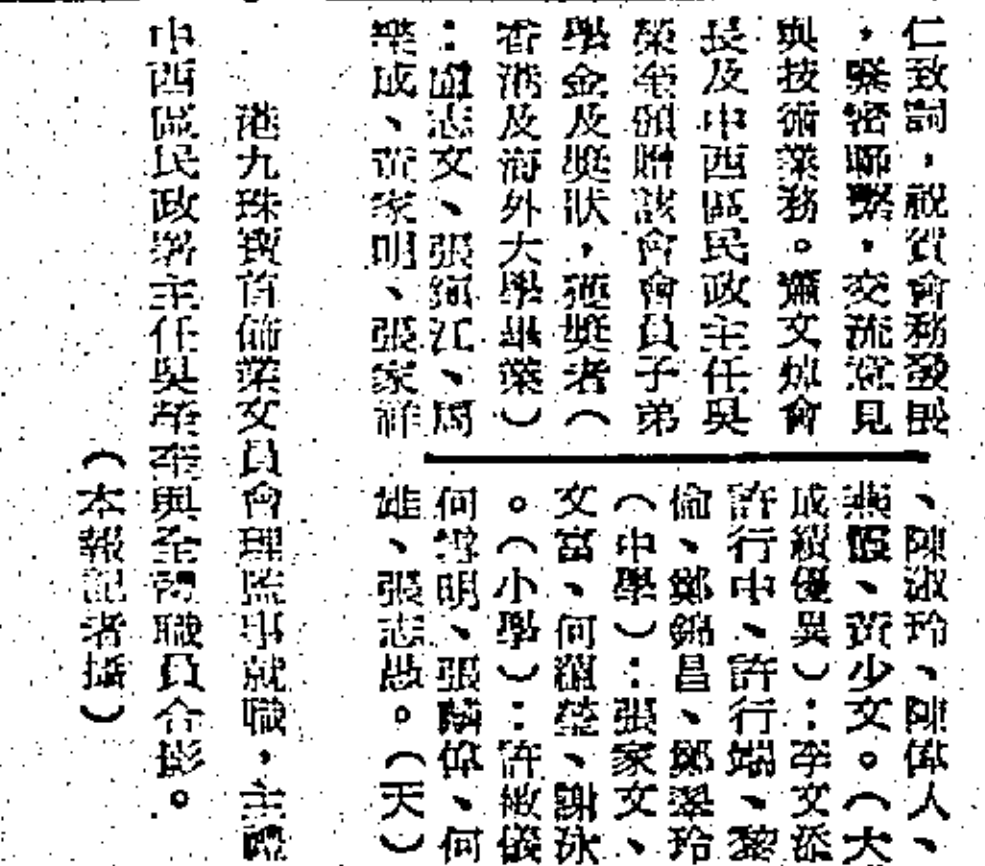 仁致詞，祝賀會務發展
，緊密聯繫，交流意見
與技術業務。蕭文焯會
長及中西區民政主任吳
榮奎頒贈該會會員子弟
學金及獎狀，獲獎者（
香港及海外大學畢業）
：盧志文、張江、周
樂成、黃家明、張家祥
、陳淑玲、陳偉人、
燕、黃少文。（大
成績優異）：李文添
許行中、許行端、黎
倫、鄭錦昌、鄭翠玲
（中學）：張家文、
文富、何瑩、謝泳
。（小學）：許敏儀
何雪明、張麟偉、何
雄、張志愚。（天）
港九珠寶首飾業文員會理監事就職，主禮
中西區民政署主任吳榮奎與全體職員合影。
（本報記者攝）